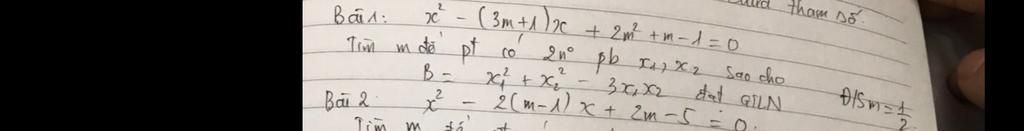 tham số.
Bài 1: x² - (3m+1)x + 2m² + m - 1 = 0
Tìm m để pt có 2n° pb x₁, x₂ sao cho
B = x₁² + x₂² - 3x₁x₂ đạt GTLN
Đ/S m = 1/2
Bài 2 x² - 2(m-1)x + 2m - 5 = 0.
Tìm m để